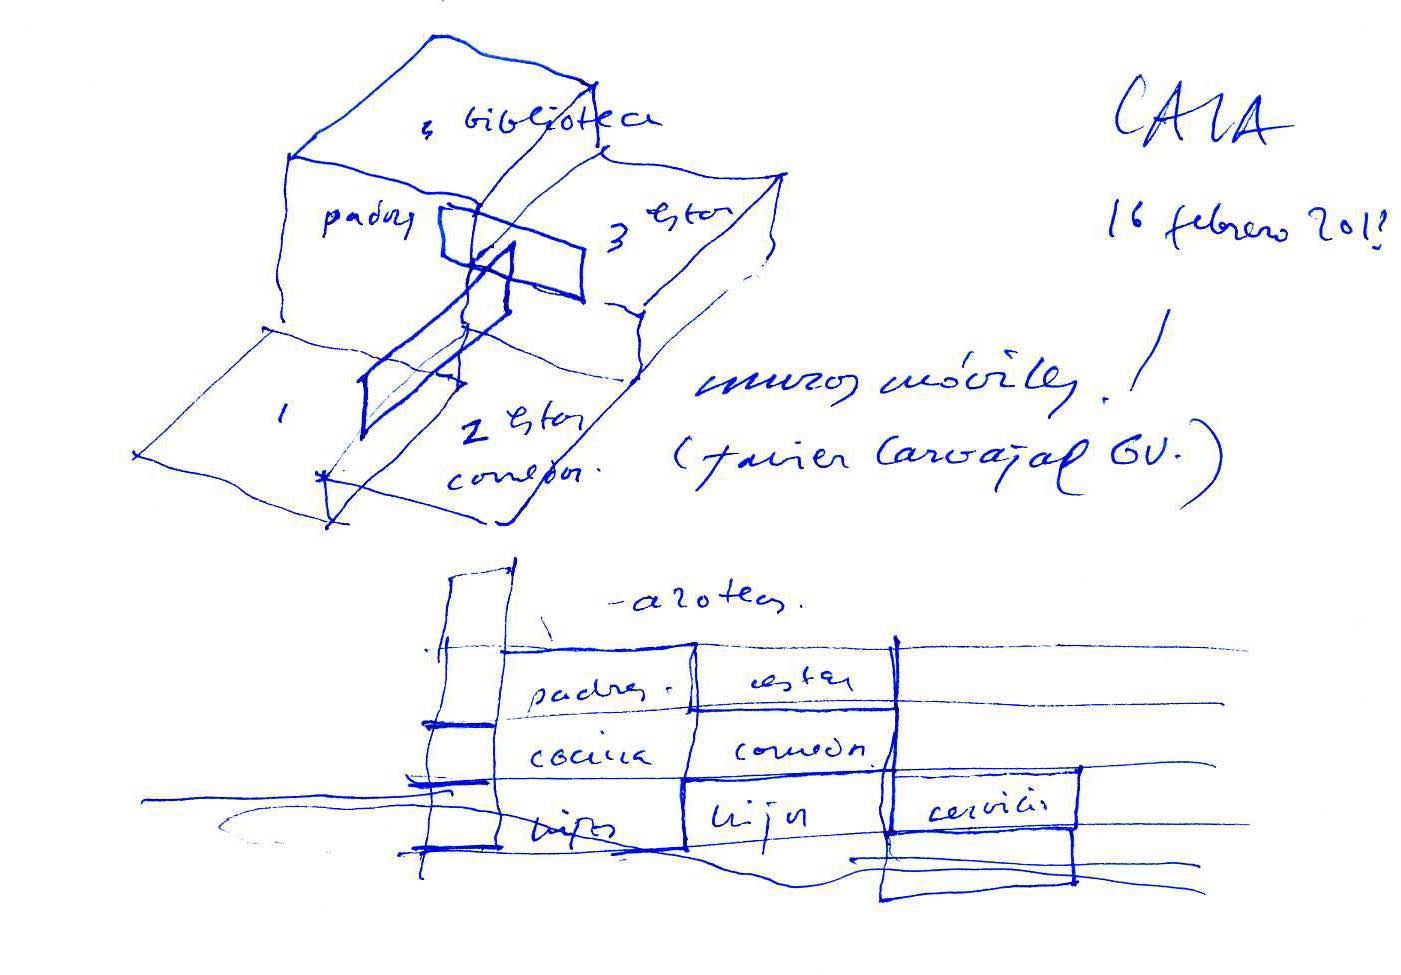 CALA
16 febrero 201!
4 biblioteca
padres
3 estar
1
2 estar
comedor.
muros móviles. !
(Javier Carvajal GV.)
-azoteas.
padres. estar
cocina comedor
hijos hijos servicio